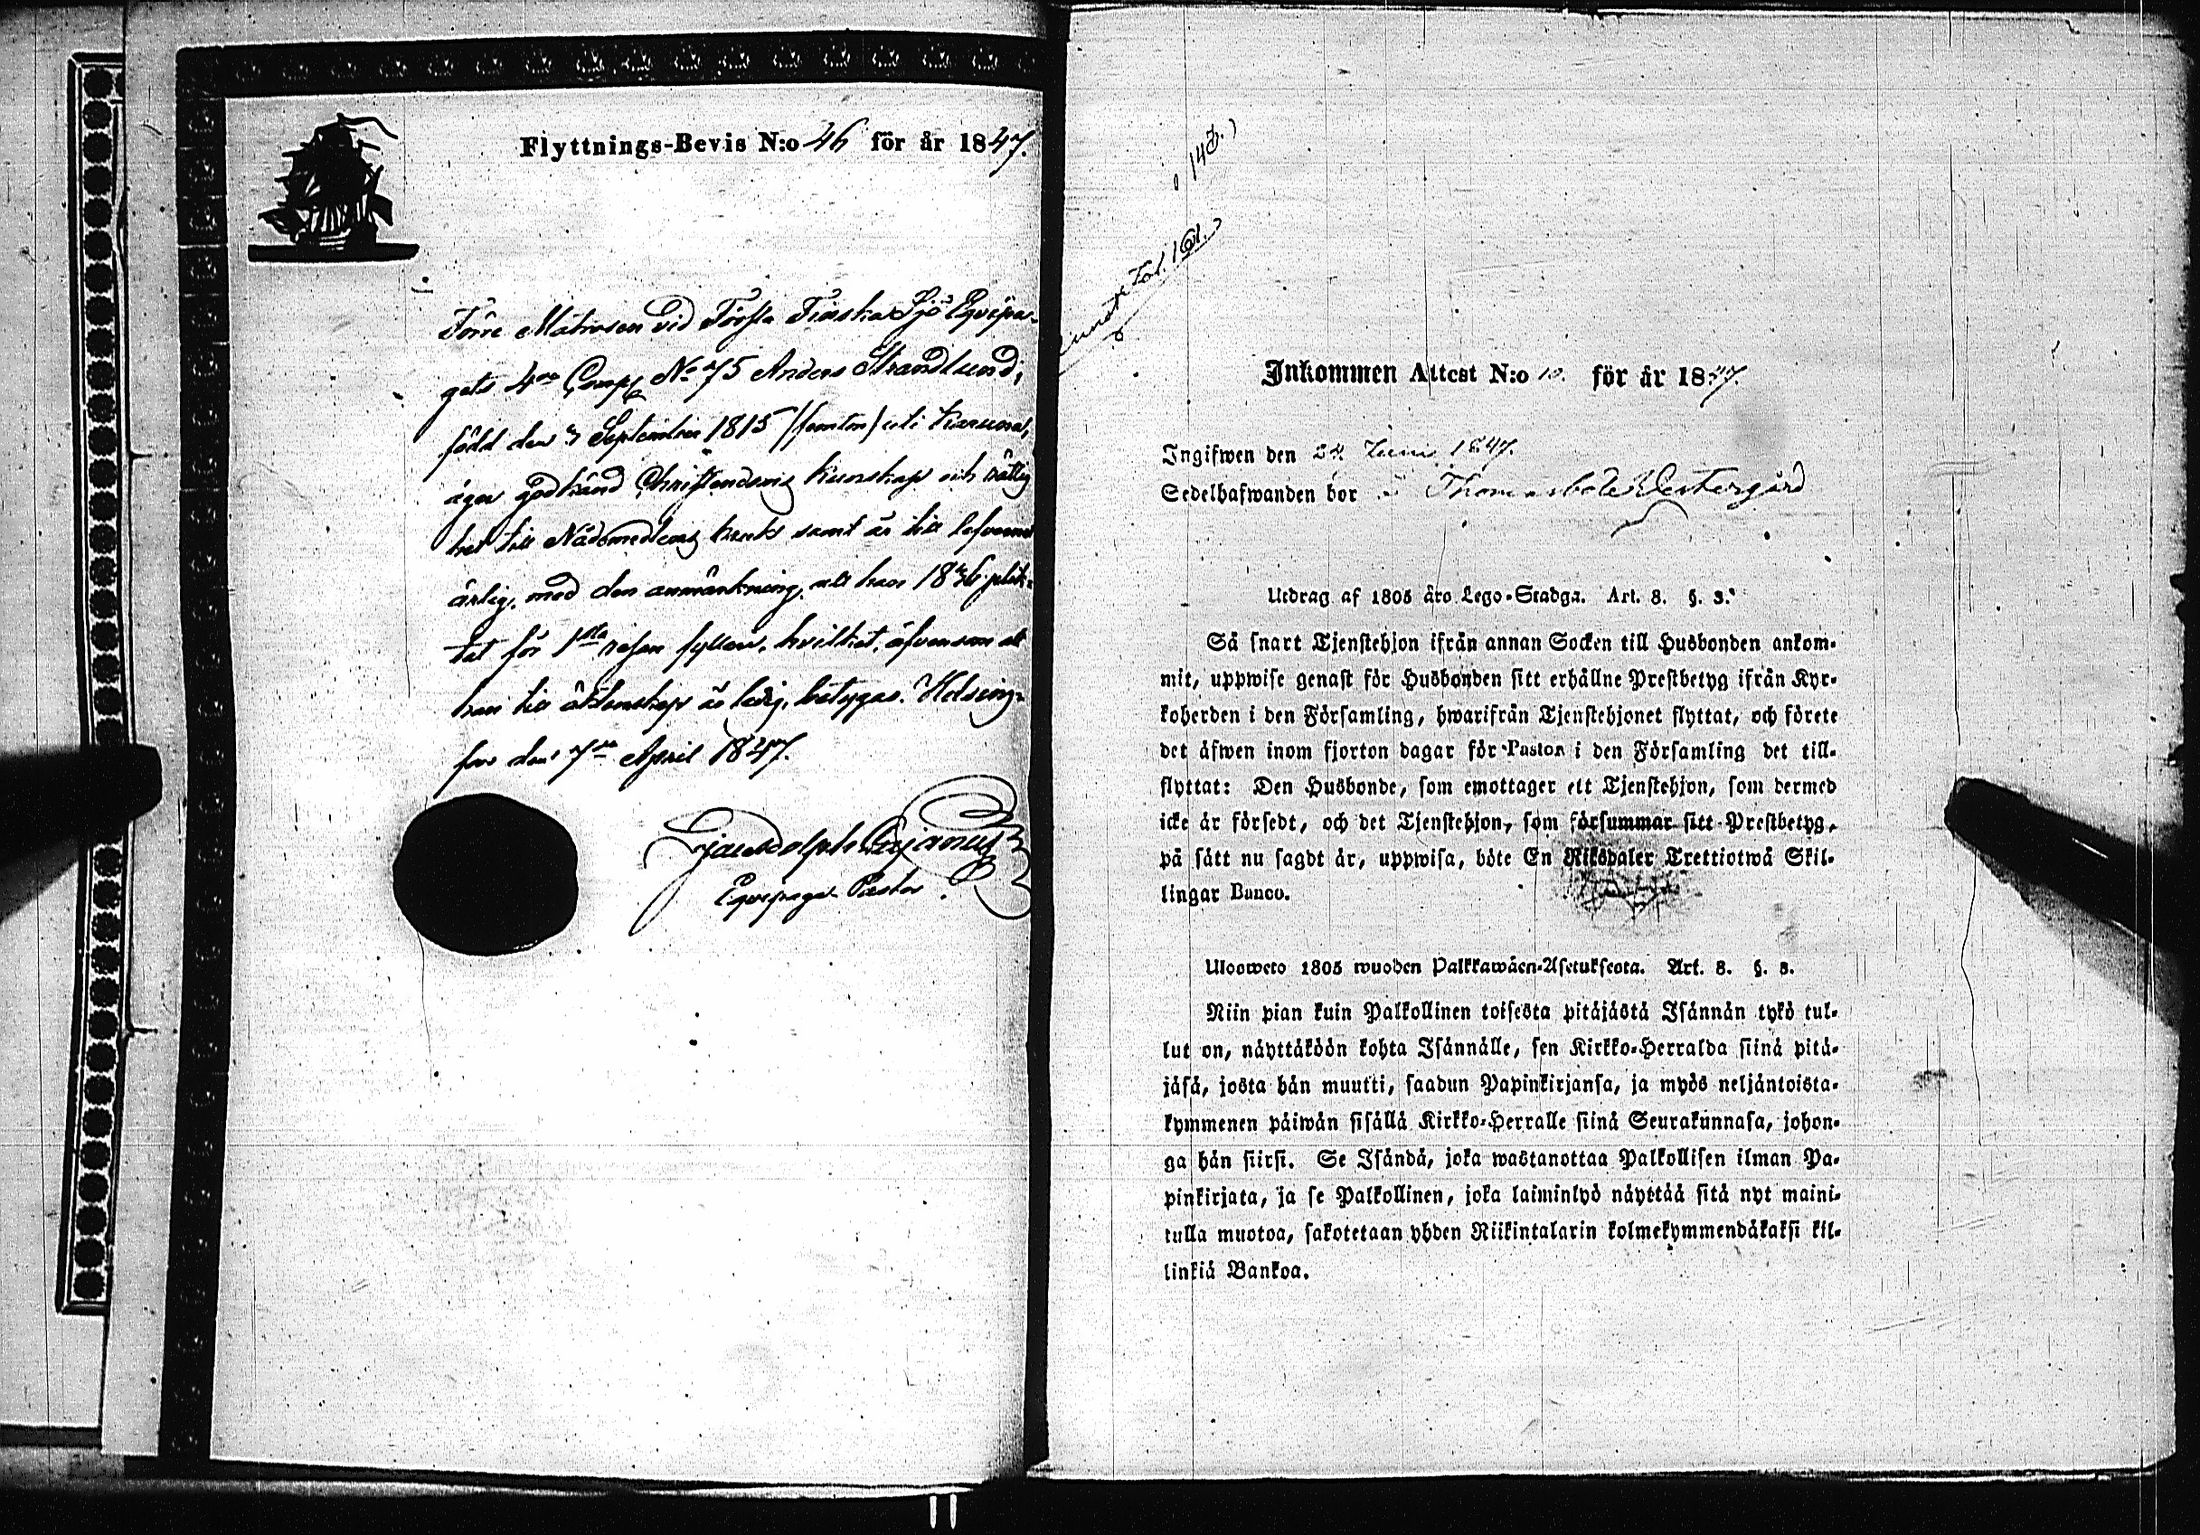 Flyttnings-Bevis N:o 46 för år 1847.
Förre Matrosen vid Första Finska Sjö Equipa-
gets 4de Comp. No 75 Anders Strandlund,
född den 3 September 1815 /femton/ uti Karuna,
äger godkänd Christendoms kunskap och rättig
het till Nådemedlens bruk samt är till lefvernet
ärlig, med den anmärkning, att han 1836 plik-
tat för 1sta resan fylleri, hvilket, äfvensom at
han till äktenskap är ledig, betygas. Helsing-
fors den 7de April 1847.
Equipage Pastor.
143.)
Fol. 161.
Inkommen Attest N:o 10. för år 1847.
Ingifwen den 24 Juni 1847.
Sedelhafwanden bor i Thomasböle Westergård
Utdrag af 1805 års Lego-Stadga. Art. 8. §. 3.
Så snart Tjenstehjon ifrån annan Socken till Husbonden ankom-
mit, uppwise genast för Husbonden sitt erhållne Prestbetyg ifrån Kyr-
koherden i den Församling, hwarifrån Tjenstehjonet flyttat, och förete
det äfwen inom fjorton dagar för Pastor i den Församling det till-
flyttat: Den Husbonde, som emottager ett Tjenstehjon, som dermed
icke är försedt, och det Tjenstehjon, som försummar sitt Prestbetyg,
på sätt nu sagdt är, uppwisa, böte En Riksdaler Trettiotwå Skil-
lingar Banco.
Ulosweto 1805 wuoden Palkkawäen-Asetuksesta. Art. 8. §. 3.
Niin pian kuin Palkollinen toisesta pitäjästä Isännän tykö tul-
lut on, näyttäköön kohta Isännälle, sen Kirkko-Herralda siinä pitä-
jäsä, josta hän muutti, saadun Papinkirjansa, ja myös neljäntoista-
kymmenen päiwän sisällä Kirkko-Herralle siinä Seurakunnasa, johon-
ga hän siirsi. Se Isändä, joka wastanottaa Palkollisen ilman Pa-
pinkirjata, ja se Palkollinen, joka laiminlyö näyttää sitä nyt maini-
tulla muotoa, sakotetaan yhden Riikintalarin kolmekymmendäkaksi kil-
linkiä Bankoa.